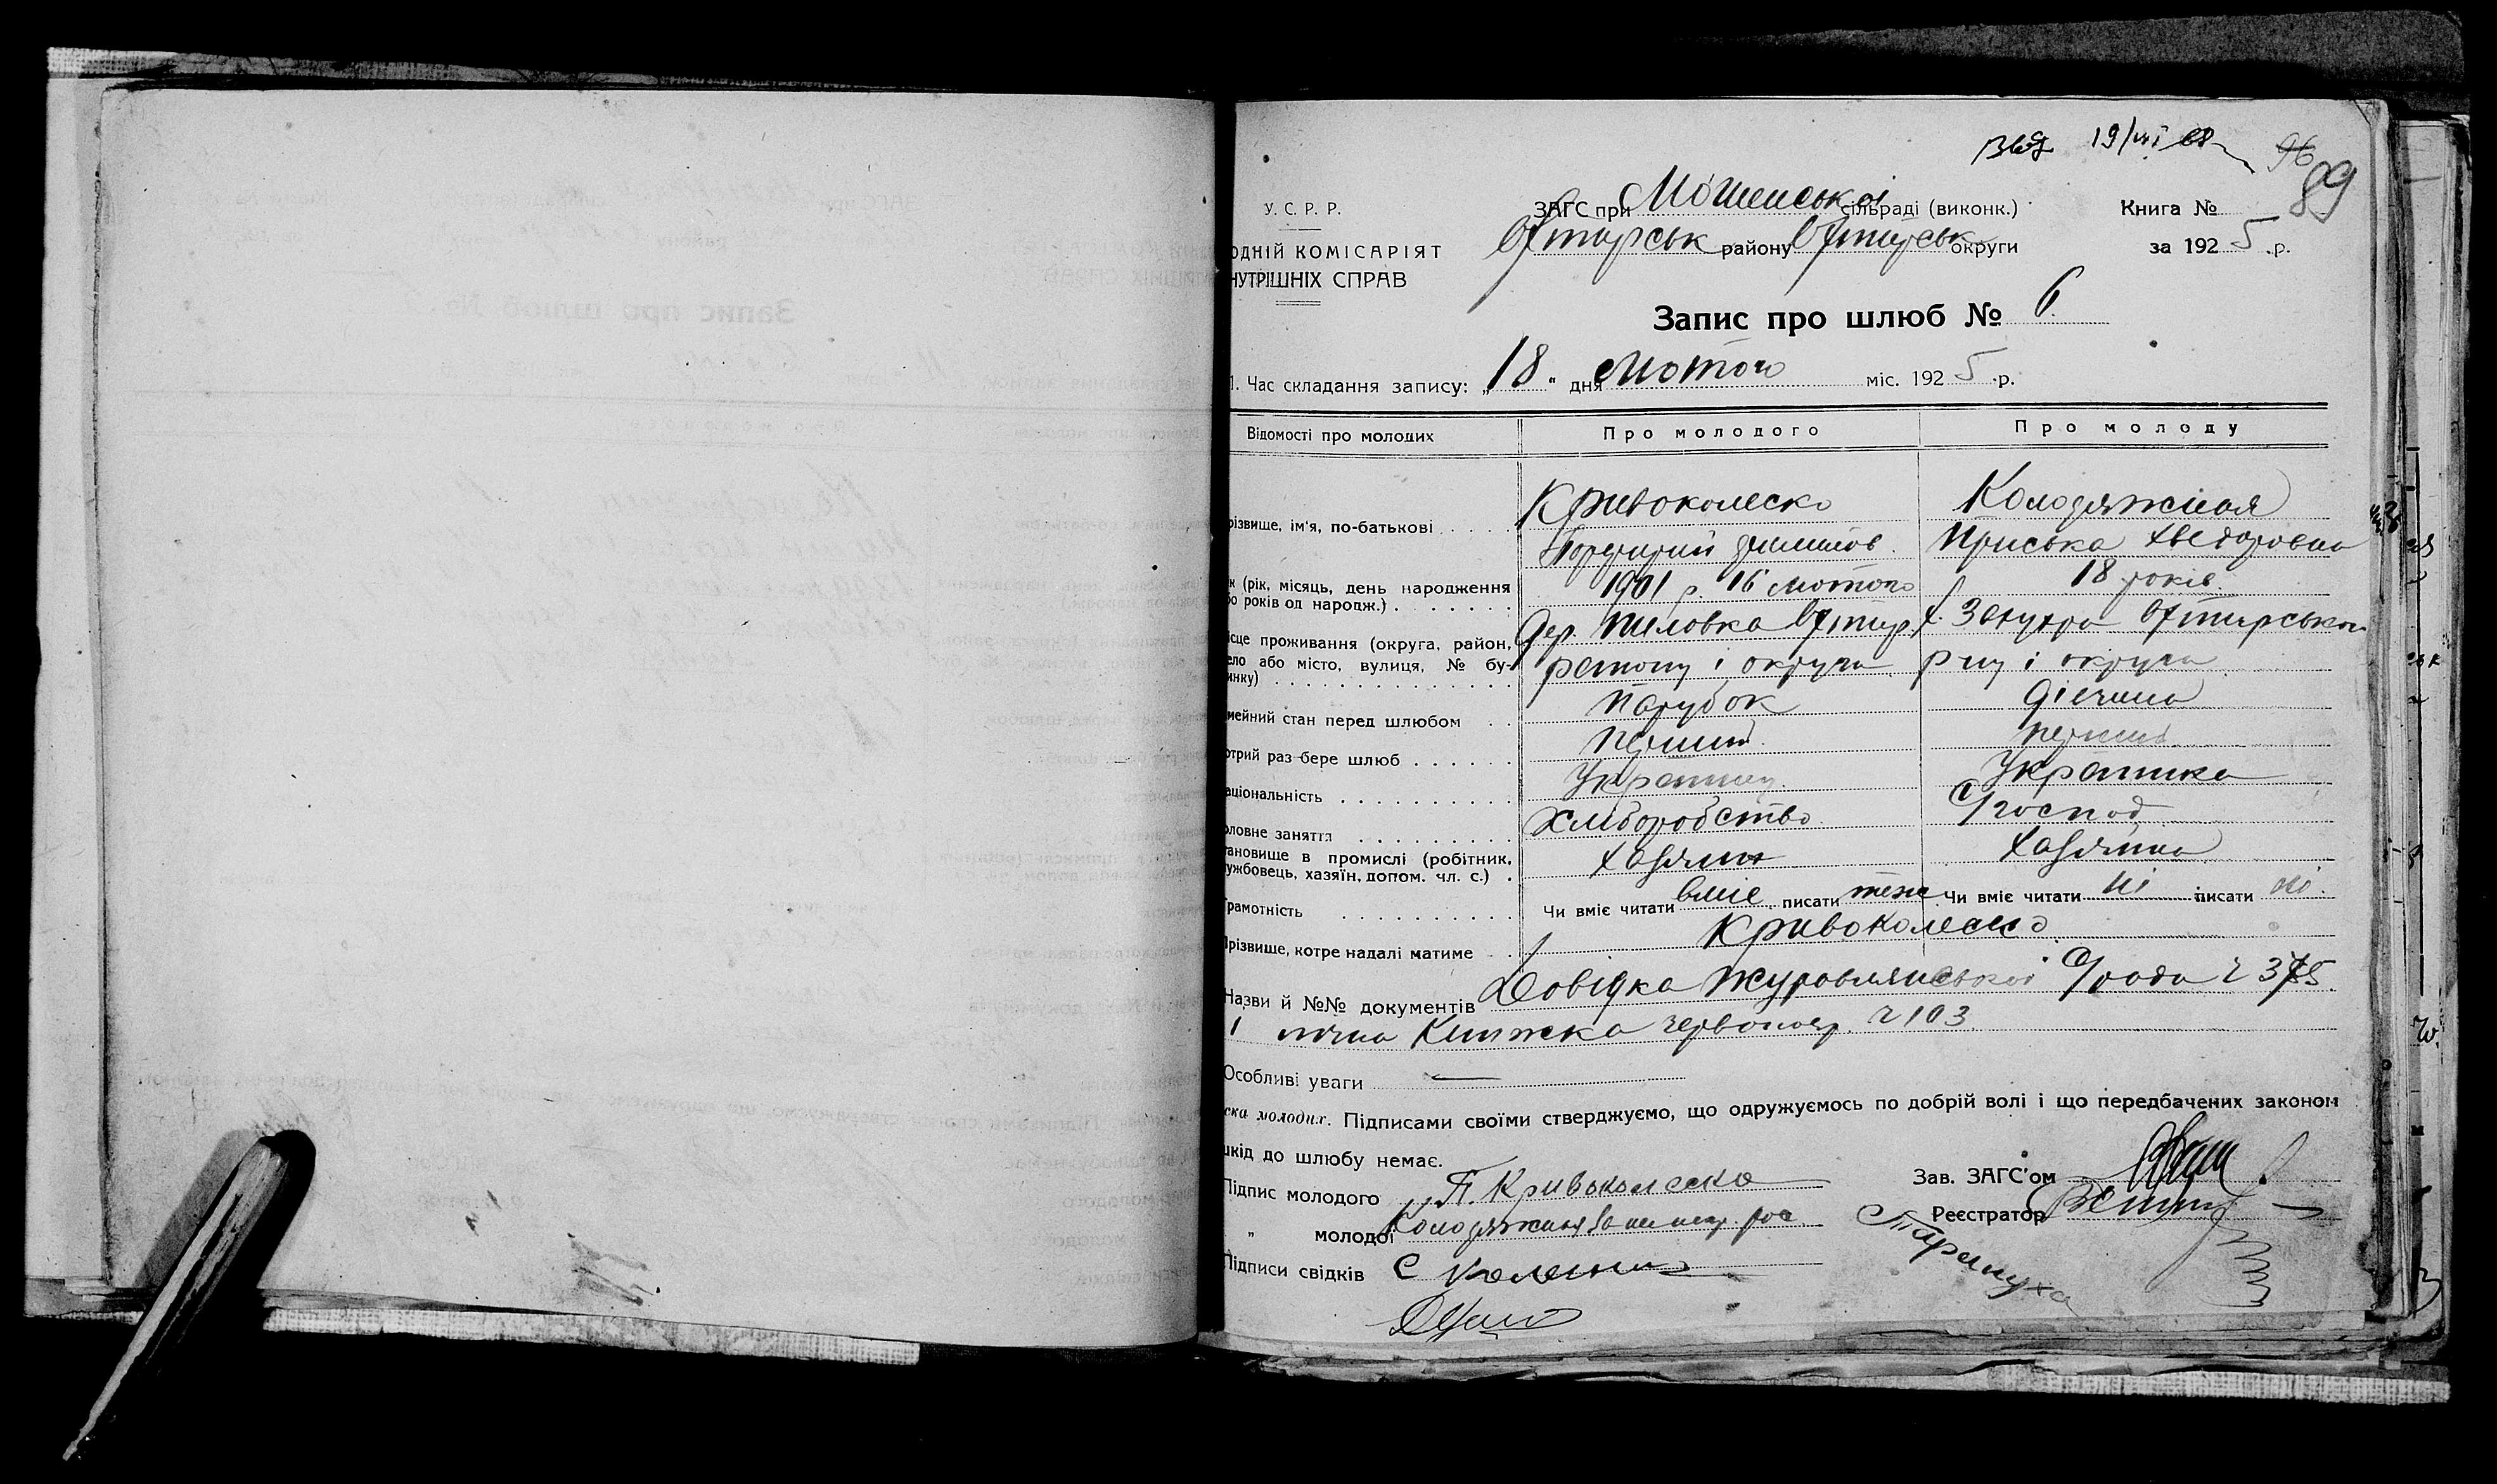 19/VII
96
89
У. С. Р. Р.
ЗАГС при Мошенської сільраді (виконк.)
Книга №
ОДНІЙ КОМІСАРІЯТ
Охтирськ району Охтирськ округи
за 1925 р.
НУТРІШНІХ СПРАВ
Запис про шлюб № 6.
1. Час складання запису: „18" дня Лютого міс. 1925 р.
Відомості про молодих
Про молодого
Про молоду
різвище, ім'я, по-батькові
Кривоколеско
Колодяжная
Порфирий
Приська Хведоровна
к (рік, місяць, день народження
о років од народж.)
1901 р. 16 лютого
18 років
ісце проживання (округа, район,
ело або місто, вулиця, № бу-
инку)
дер. Пиловка Охтир
району і округи
х. Зенукра Охтирської
р-ну і округи
мейний стан перед шлюбом
парубок
дівчина
отрий раз бере шлюб
перший
перший
аціональність
Українец
Українка
оловне заняття
Хліборобство
С/господ
тановище в промислі (робітник,
ужбовець, хазяїн, допом. чл. с.)
хазяин
хазяйка
рамотність
Чи вміє читати вміє писати теж
Чи вміє читати ні писати ні.
Прізвище, котре надалі матиме
Кривоколеско
Назви й №№ документів Довідка Журавлянської С/ради
і лічна Книжка червоноар. ч 103
Особливі уваги —
ска молодих. Підписами своїми стверджуємо, що одружуємось по добрій волі і що передбачених законом
шкід до шлюбу немає.
Підпис молодого П. Кривоколеско
Зав. ЗАГС'ом
„ молодої Колодяжная за
Реєстратор
Підписи свідків С Колесник